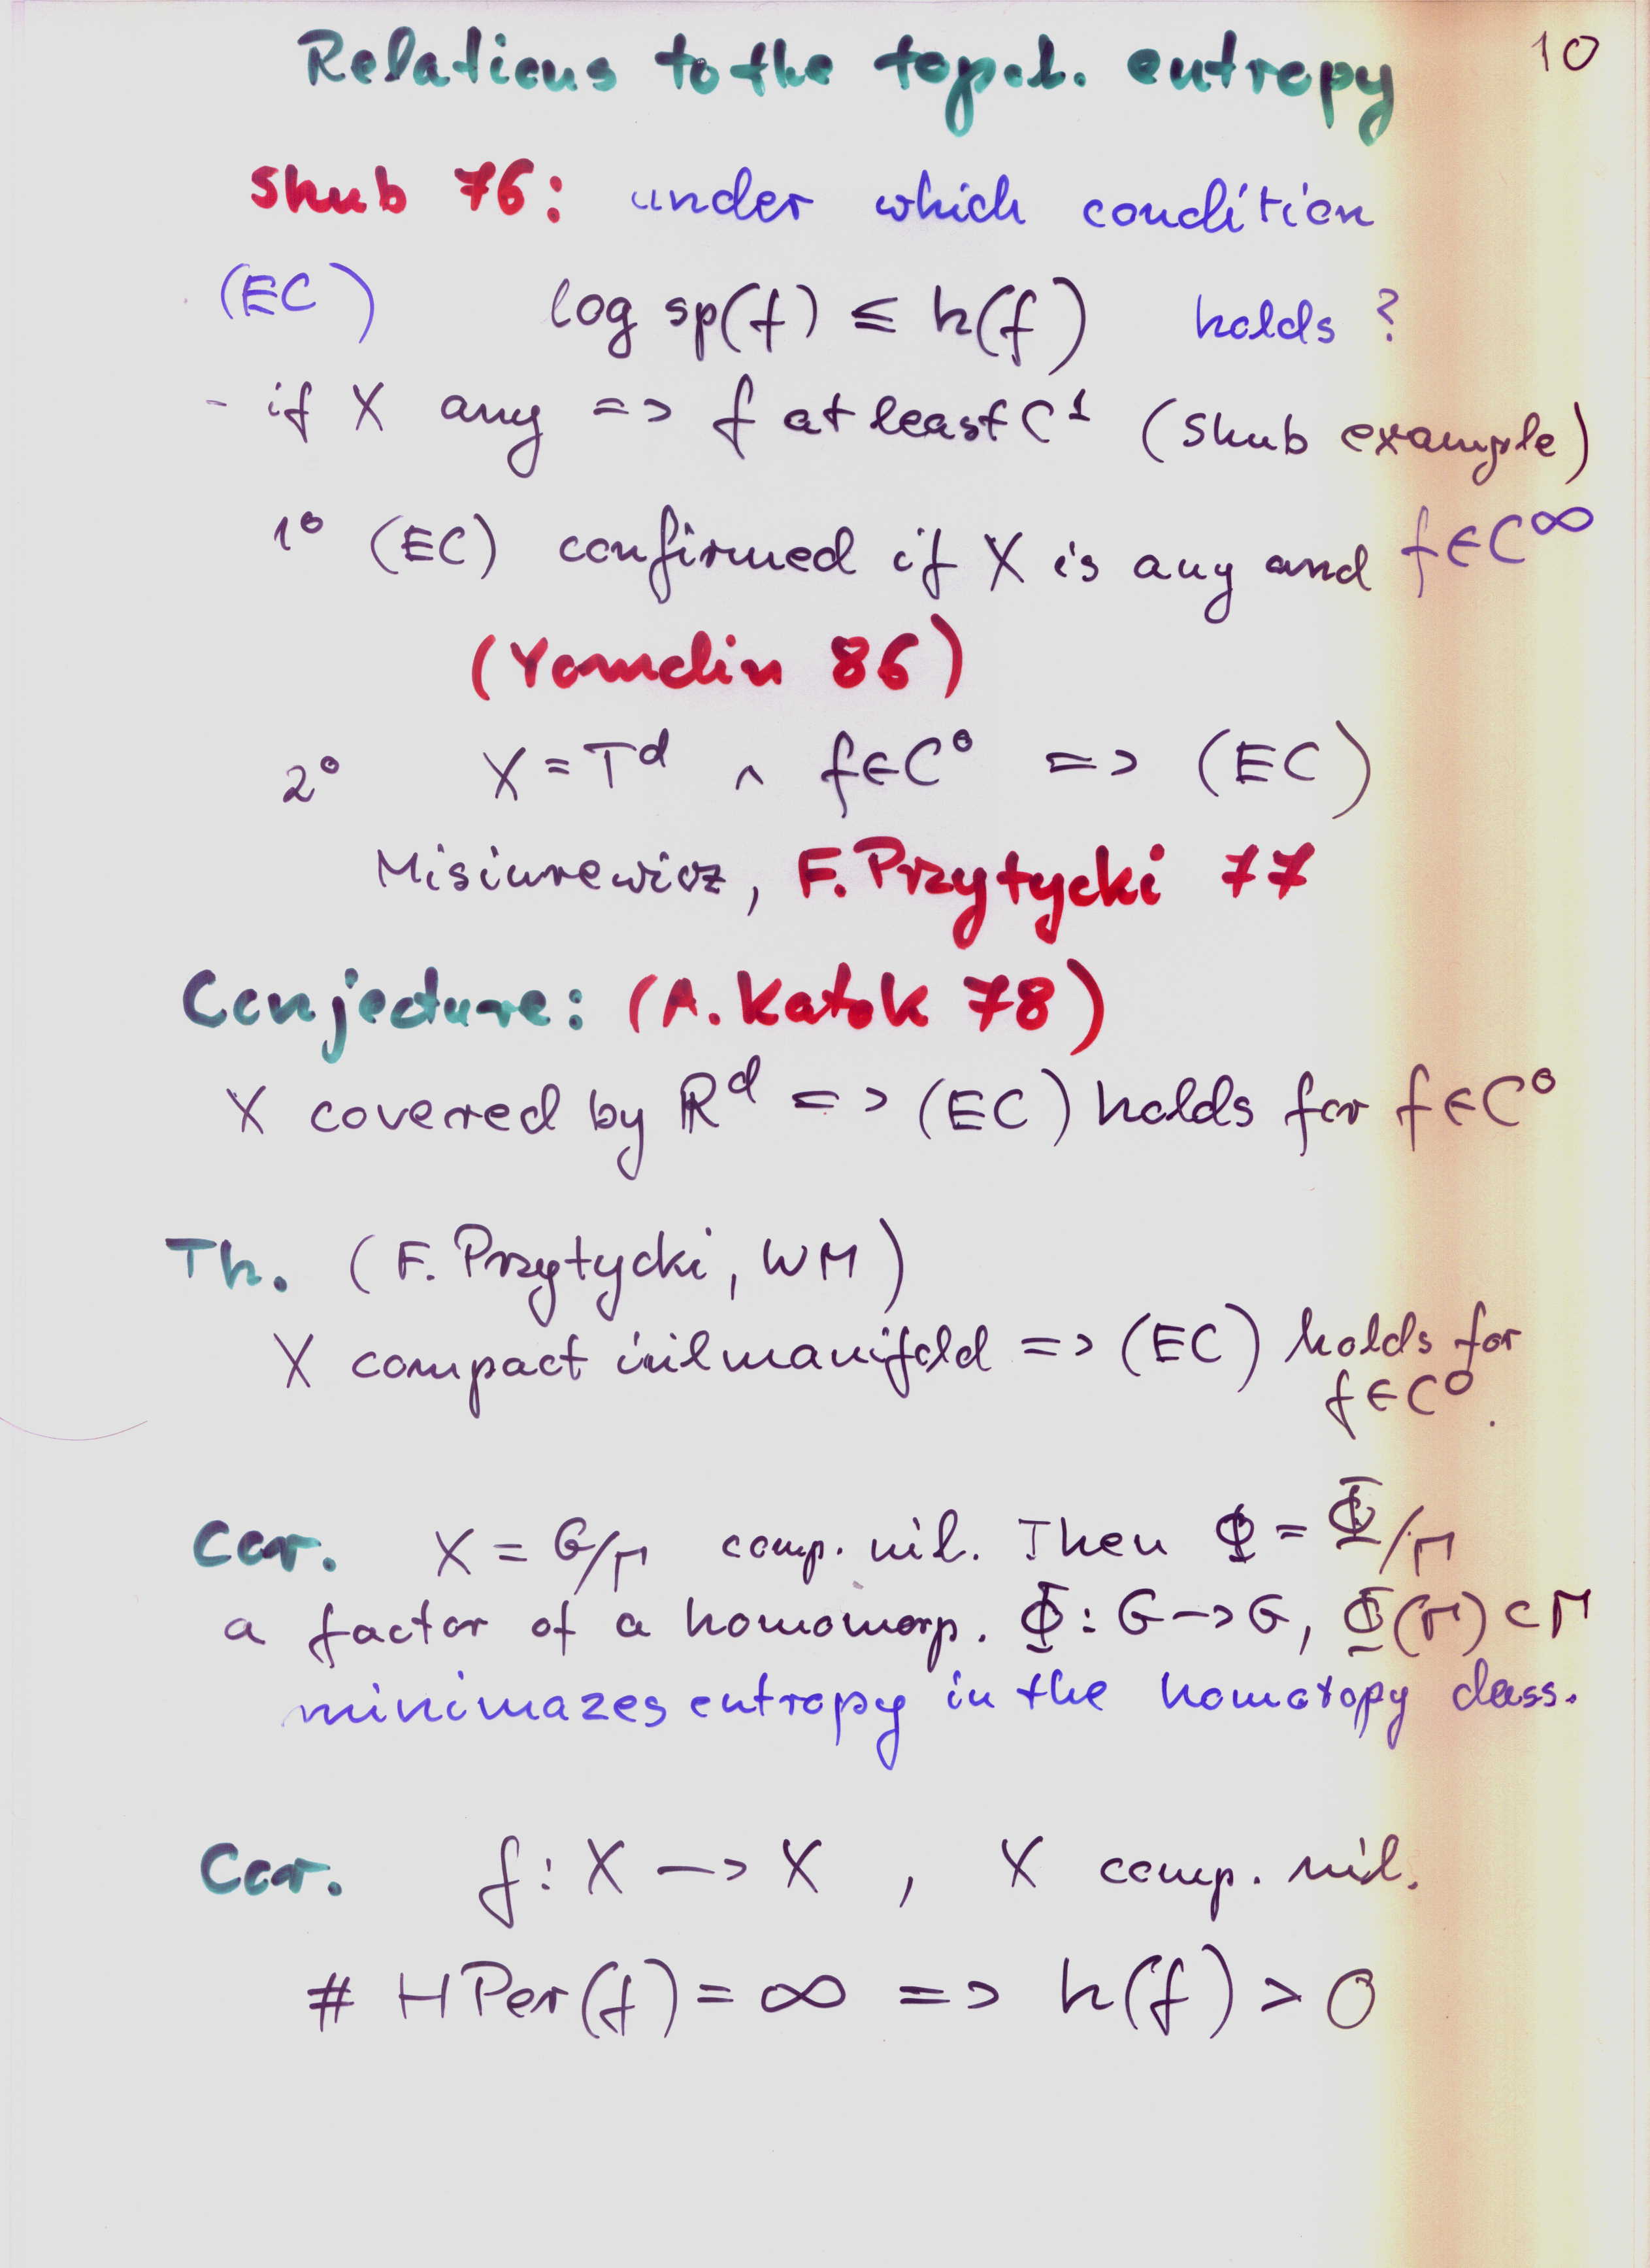 Relations to the topol. entropy 10
Shub 76: under which condition
(EC) log sp(f) ≤ h(f) holds ?
- if X any => f at least C¹ (Shub example)
1° (EC) confirmed if X is any and f∈C^∞
(Yomdin 86)
2° X = T^d ∧ f∈C⁰ => (EC)
Misiurewicz, F. Przytycki 77
Conjecture: (A. Katok 78)
X covered by ℝ^d => (EC) holds for f∈C⁰
Th. (F. Przytycki, WM)
X compact nilmanifold => (EC) holds for
f∈C⁰.
Cor. X = G/Γ comp. nil. Then Φ = Φ̄/Γ
a factor of a homomorp. Φ̄: G -> G, Φ̄(Γ) ⊂ Γ
minimazes entropy in the homotopy class.
Cor. f: X -> X , X comp. nil.
# HPer(f) = ∞ => h(f) > 0